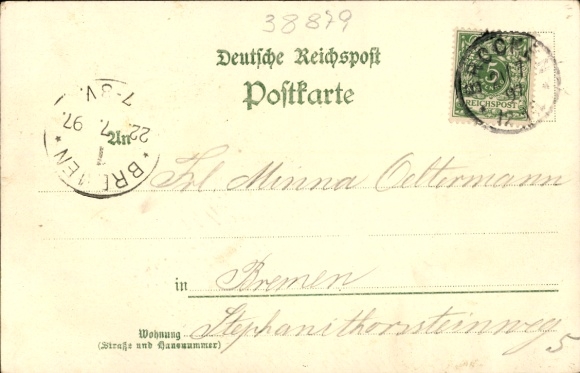 38879
Deutsche Reichspost
Postkarte
5
REICHSPOST
BREMEN
22. 7. 97.
7-8V.
An
Frl Minna Oeltermann
in Bremen
Wohnung Stephanithorssteinweg 5
(Straße und Hausnummer)